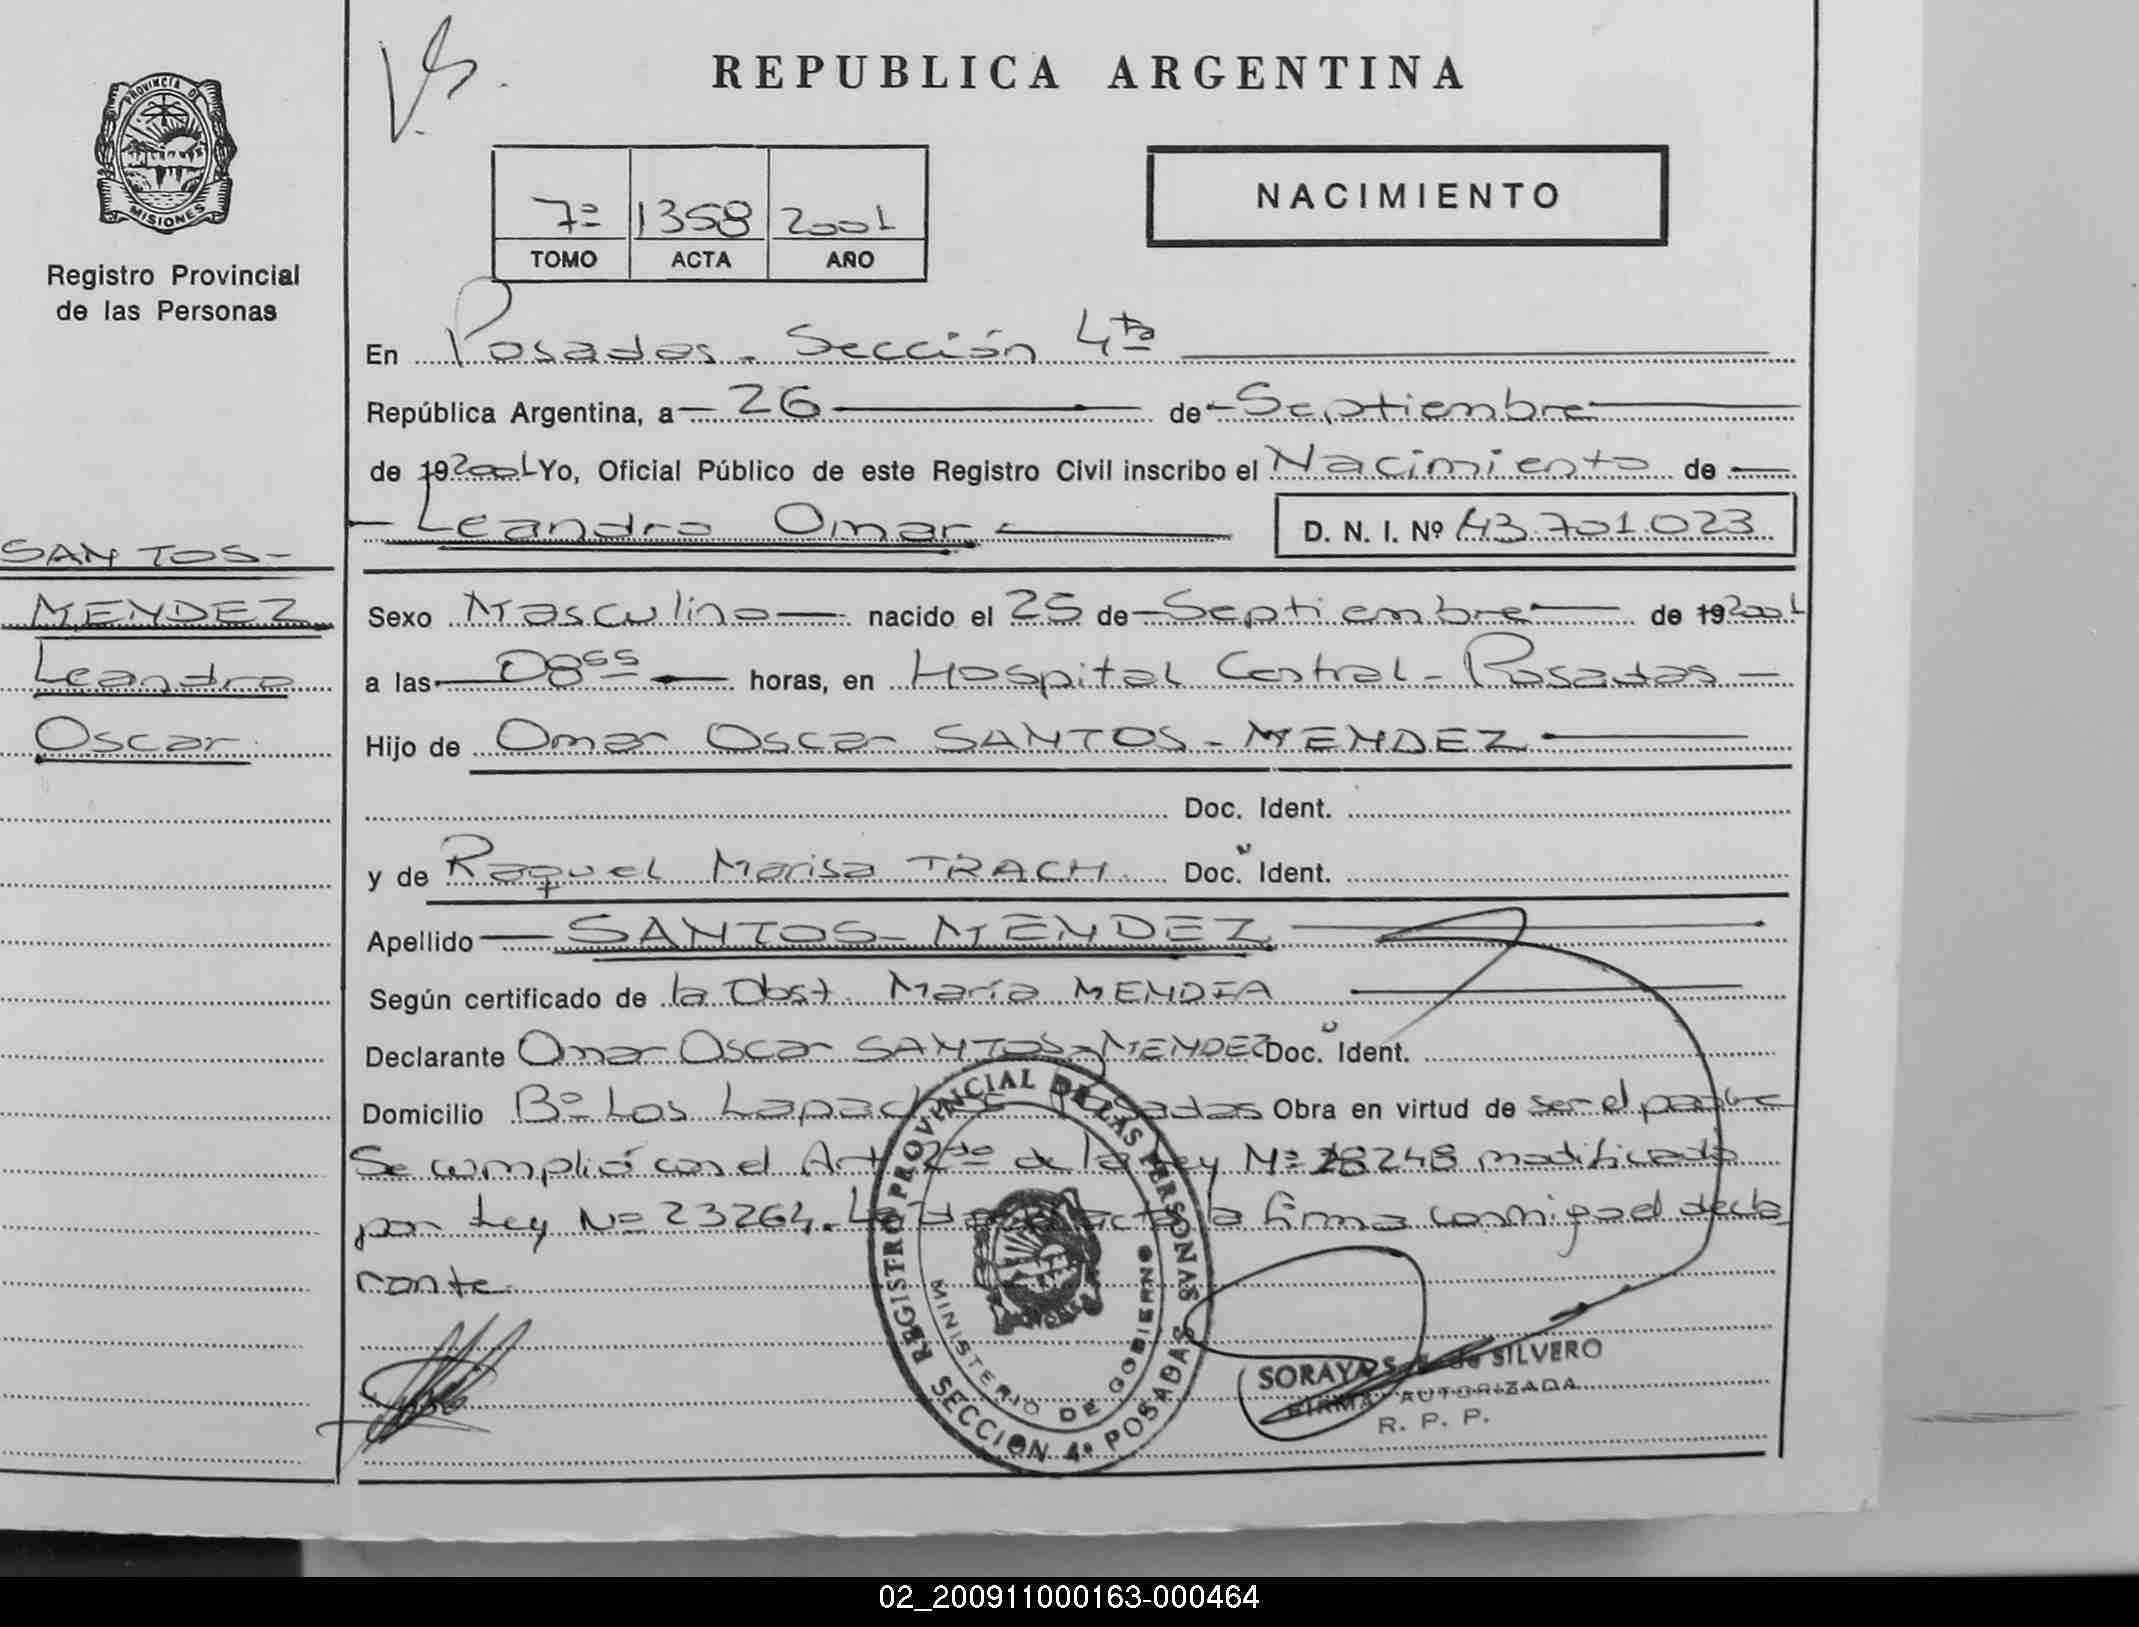 PROVINCIA D
MISIONES
Registro Provincial
de las Personas
SANTOS-
MENDEZ
Leandro
Oscar
REPUBLICA ARGENTINA
NACIMIENTO
7º 1358 2001
TOMO ACTA AÑO
En Posadas - Sección 4ta
República Argentina, a 26 de Septiembre
de 19 2001 Yo, Oficial Público de este Registro Civil inscribo el Nacimiento de
Leandro Omar D. N. I. Nº 43.701.023
Sexo Masculino nacido el 25 de Septiembre de 19 2001
a las 08 55 horas, en Hospital Central - Posadas -
Hijo de Omar Oscar SANTOS - MENDEZ
Doc. Ident.
y de Raquel Marisa TRACH Doc. Ident.
Apellido SANTOS - MENDEZ
Según certificado de la Obst. María
Declarante Omar Oscar SANTOS - MENDEZ Doc. Ident.
Domicilio Bº Los Lapachos Posadas Obra en virtud de ser el padre
Se cumplió con el Art 2do de la Ley Nº 18248 modificado
por Ley Nº 23264. Leída acta la firma conmigo el decla
rante.
REGISTRO PROVINCIAL DE LAS PERSONAS
MINISTERIO DE GOBIERNO
SECCION 4ª POSADAS
SORAYA S. de SILVERO
FIRMA AUTORIZADA
R. P. P.
02_200911000163-000464